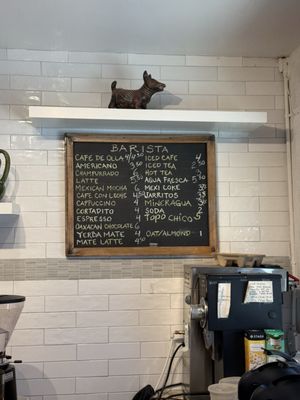 BARISTA
CAFE DE OLLA 4/4.50
AMERICANO 3.50
CHAMPURRADO 5
LATTE 5.50
MEXICAN MOCHA 6
CAFE CON LECHE 4.50
CAPPUCINO 4
CORTADITO 4
ESPRESSO 4
OAXACAN CHOCOLATE 6
YERBA MATE 4
MATE LATTE 4.50
ICED CAFE 4
ICED TEA 2.50
HOT TEA 3
AGUA FRESCA 5.50
MEXI COKE
JARRITOS
MINERAGUA
SODA 2
TOPO CHICO 5
OAT/ALMOND 1